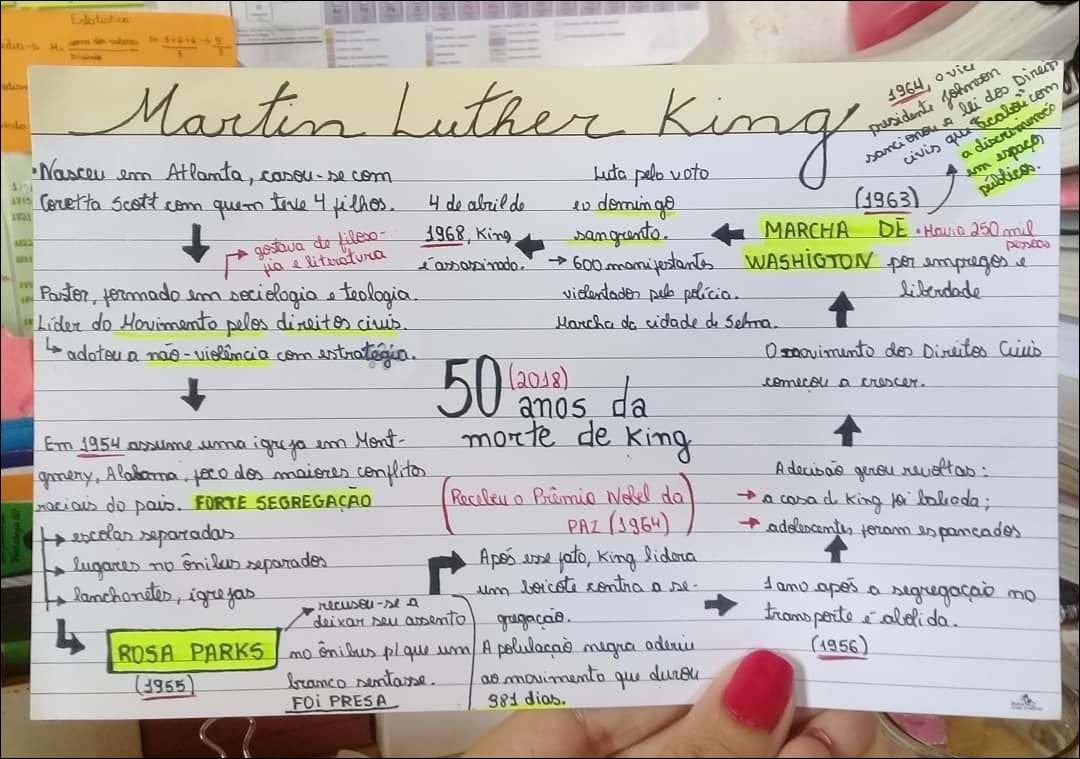 Estatística
Martin Luther King
1964, o vice
presidente Johnson
sancionou a lei dos Direitos
civis que "acabou" com
a discriminação
em espaços
públicos.
• Nasceu em Atlanta, casou-se com
Coretta Scott com quem teve 4 filhos.
gostava de filoso-
fia e literatura
Pastor, formado em sociologia e teologia.
Líder do Movimento pelos direitos civis.
↳ adotou a não-violência com estratégia.
Em 1954 assume uma igreja em Mont-
gmery, Alabama, foco dos maiores conflitos
raciais do país. FORTE SEGREGAÇÃO
→ escolas separadas
→ lugares no ônibus separados
→ lanchonetes, igrejas
ROSA PARKS
(1955)
recusou-se a
deixar seu assento
no ônibus p/ que um
branco sentasse.
FOI PRESA
Após esse fato, King lidera
um boicote contra a se-
gregação.
A população negra aderiu
ao movimento que durou
381 dias.
1 ano após a segregação no
transporte é abolida.
(1956)
A decisão gerou revoltas:
→ a casa d King foi baleada;
→ adolescentes foram espancados
O movimento dos Direitos Civis
começou a crescer.
(1963)
MARCHA DE
WASHIGTON por empregos e
liberdade
• Havia 250 mil
pessoas
Luta pelo voto
eo domingo
sangrento.
→ 600 manifestantes
violentados pela polícia.
Marcha da cidade de Selma.
4 de abril de
1968, King
é assassinado.
50 (2018)
anos da
morte de King
(Recebeu o Prêmio Nobel da
PAZ (1964))